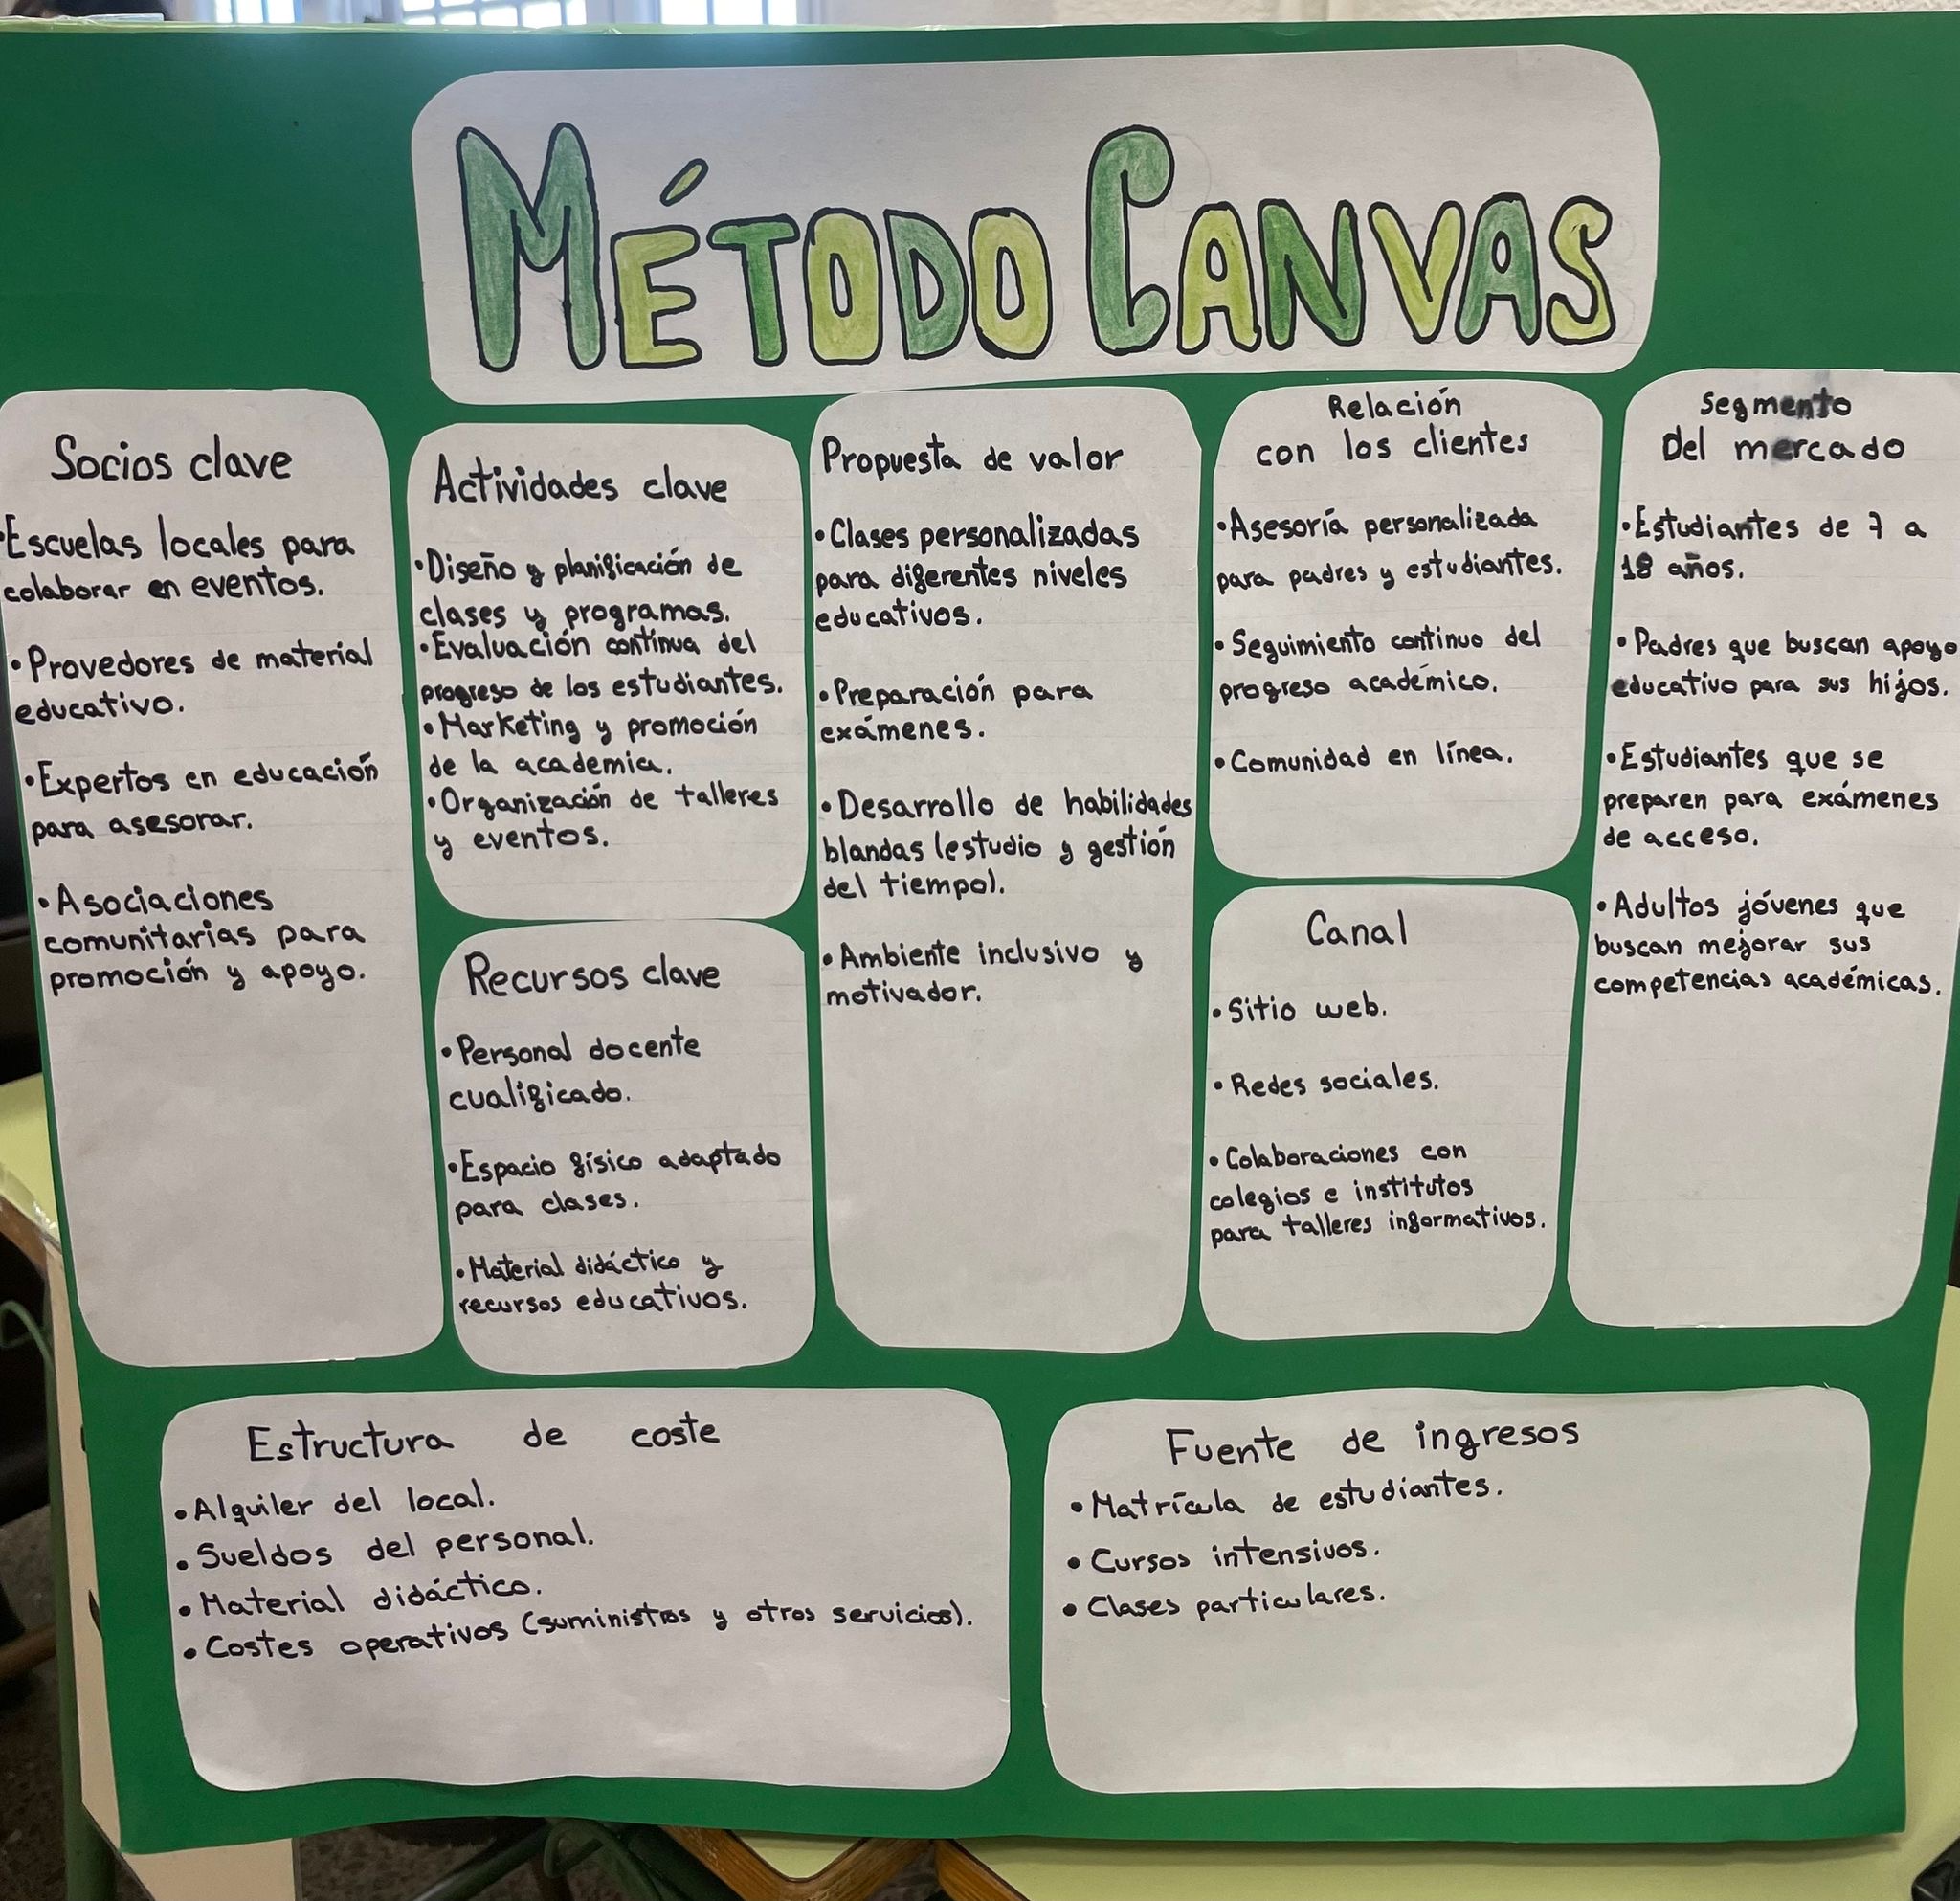 MÉTODO CANVAS
Socios clave
•Escuelas locales para
colaborar en eventos.
•Provedores de material
educativo.
•Expertos en educación
para asesorar.
•Asociaciones
comunitarias para
promoción y apoyo.
Actividades clave
•Diseño y planificación de
clases y programas.
•Evaluación contínua del
progreso de los estudiantes.
•Marketing y promoción
de la academia.
•Organización de talleres
y eventos.
Recursos clave
•Personal docente
cualificado.
•Espacio físico adaptado
para clases.
•Material didáctico y
recursos educativos.
Propuesta de valor
•Clases personalizadas
para diferentes niveles
educativos.
•Preparación para
exámenes.
•Desarrollo de habilidades
blandas (estudio y gestión
del tiempo).
•Ambiente inclusivo y
motivador.
Relación
con los clientes
•Asesoría personalizada
para padres y estudiantes.
•Seguimiento continuo del
progreso académico.
•Comunidad en línea.
Canal
•Sitio web.
•Redes sociales.
•Colaboraciones con
colegios e institutos
para talleres informativos.
Segmento
Del mercado
•Estudiantes de 7 a
18 años.
•Padres que buscan apoyo
educativo para sus hijos.
•Estudiantes que se
preparen para exámenes
de acceso.
•Adultos jóvenes que
buscan mejorar sus
competencias académicas.
Estructura de coste
•Alquiler del local.
•Sueldos del personal.
•Material didáctico.
•Costes operativos (suministros y otros servicios).
Fuente de ingresos
•Matrícula de estudiantes.
•Cursos intensivos.
•Clases particulares.